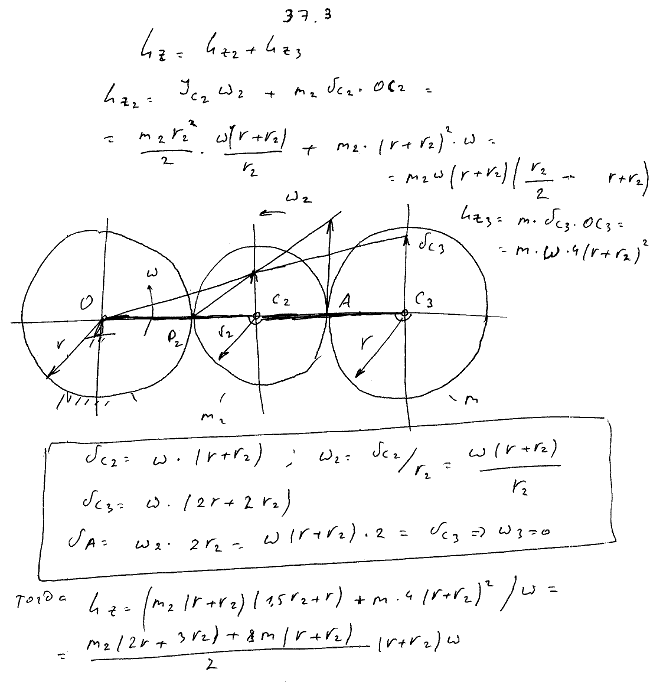 37.3
Lz = Lz2 + Lz3
Lz2 = Jc2 ω2 + m2 υc2 · OC2 =
= m2 r2² / 2 · ω(r+r2) / r2 + m2 · (r+r2)² · ω =
= m2 ω (r+r2) ( r2 / 2 + r+r2)
Lz3 = m · υc3 · OC3 =
= m · ω · 4(r+r2)²
ω2
υc3
ω
O
C2
A
C3
P2
r
r2
r
m2
m
υc2 = ω · (r+r2) ; ω2 = υc2 / r2 = ω(r+r2) / r2
υc3 = ω · (2r + 2r2)
υA = ω2 · 2r2 = ω(r+r2) · 2 = υc3 => ω3 = 0
тогда Lz = (m2 (r+r2) (1,5r2+r) + m · 4 (r+r2)² ) ω =
= m2 (2r + 3r2) + 8m (r+r2) / 2 (r+r2) ω